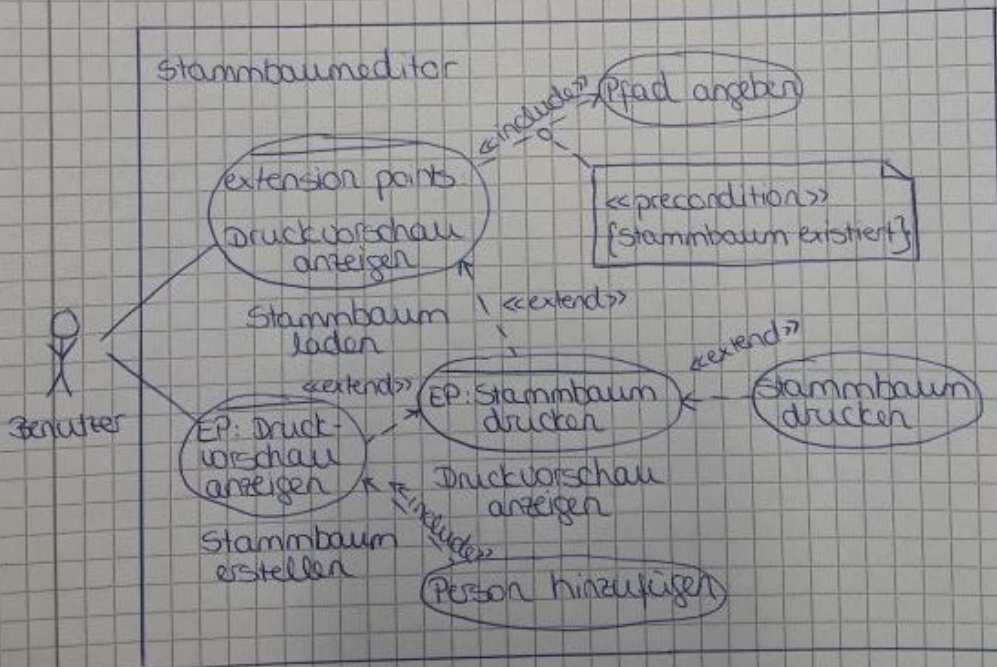 Stammbaumeditor
<<include>>
Pfad angeben
extension points:
Druckvorschau
anzeigen
<<precondition>>
{Stammbaum existiert}
Stammbaum
laden
<<extend>>
Benutzer
<<extend>>
EP: Stammbaum
drucken
<<extend>>
Stammbaum
drucken
EP: Druck-
vorschau
anzeigen
Druckvorschau
anzeigen
Stammbaum
erstellen
<<include>>
Person hinzufügen